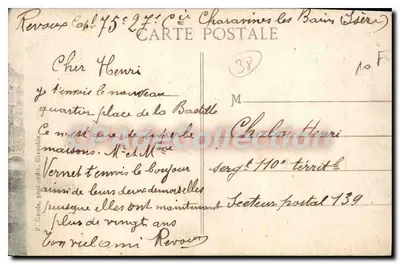 Revoux Capl 75e 27e Cie Charavines les Bains (Isère)
CARTE POSTALE
38
10 F
Cher Henri
je t'envois le nouveau
quartier place de la Bastille
Ce n'est que de superbe
maisons. Mr et Mme
Vernet t'envois le bonjour
ainsi de leurs deux demoiselles
puisque elles ont maintenant
plus de vingt ans
Ton viel ami Revoux
M
Chalon Henri
sergt 110e territle
Secteur postal 139